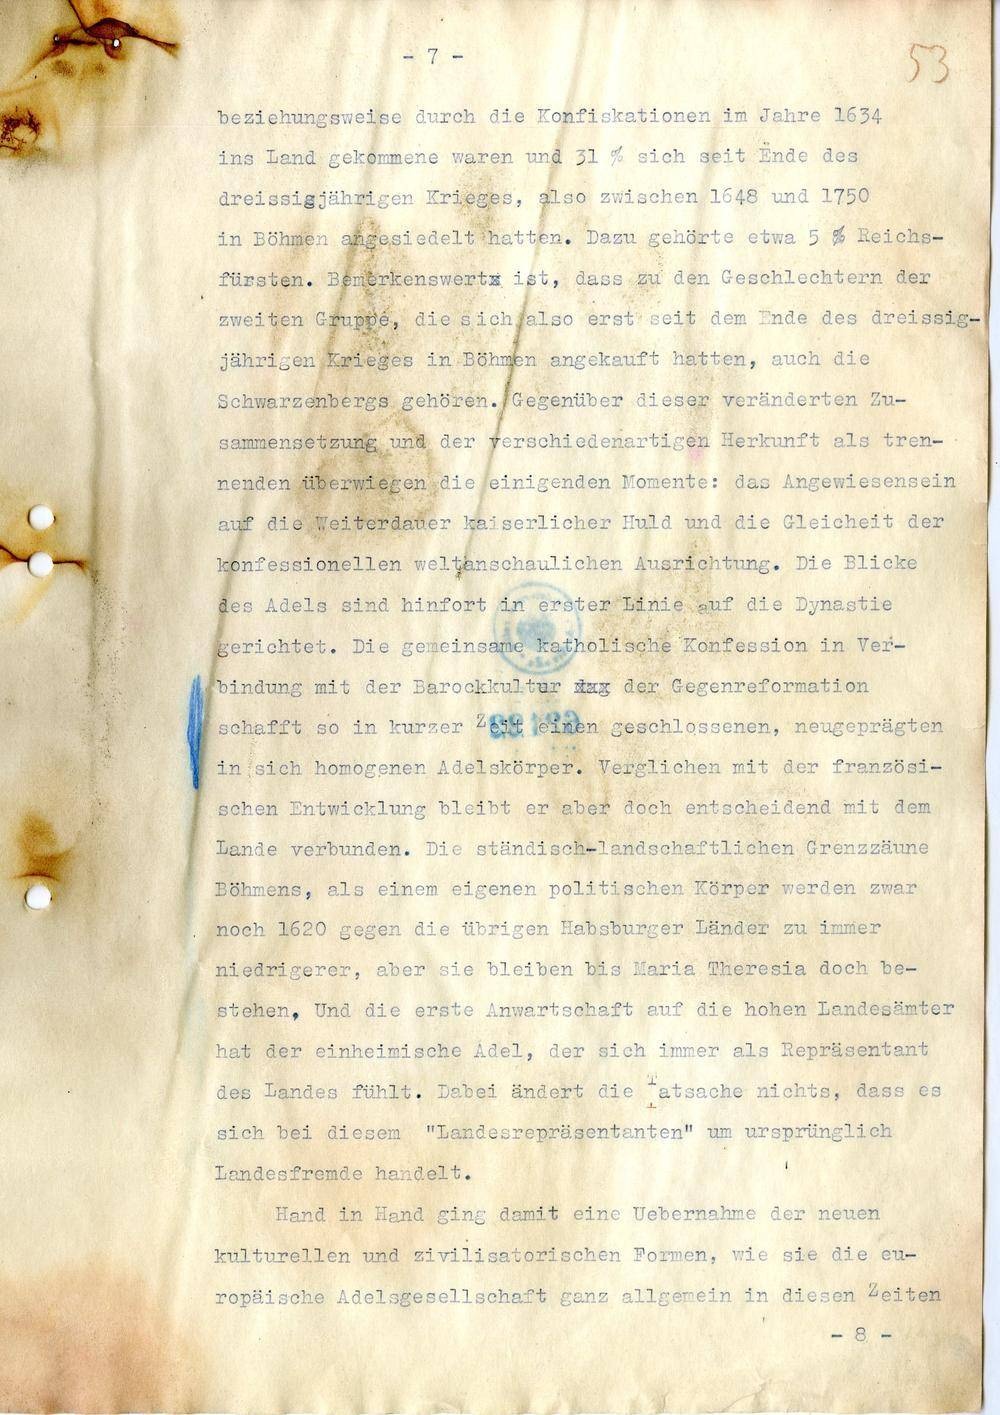 - 7 -
53
beziehungsweise durch die Konfiskationen im Jahre 1634
ins Land gekommene waren und 31 % sich seit Ende des
dreissigjährigen Krieges, also zwischen 1648 und 1750
in Böhmen angesiedelt hatten. Dazu gehörte etwa 5 % Reichs-
fürsten. Bemerkenswertx ist, dass zu den Geschlechtern der
zweiten Gruppe, die sich also erst seit dem Ende des dreissig-
jährigen Krieges in Böhmen angekauft hatten, auch die
Schwarzenbergs gehören. Gegenüber dieser veränderten Zu-
sammensetzung und der verschiedenartigen Herkunft als tren-
nenden überwiegen die einigenden Momente: das Angewiesensein
auf die Weiterdauer kaiserlicher Huld und die Gleicheit der
konfessionellen weltanschaulichen Ausrichtung. Die Blicke
des Adels sind hinfort in erster Linie auf die Dynastie
gerichtet. Die gemeinsame katholische Konfession in Ver-
bindung mit der Barockkultur xxx der Gegenreformation
schafft so in kurzer Zeit einen geschlossenen, neugeprägten
in sich homogenen Adelskörper. Verglichen mit der französi-
schen Entwicklung bleibt er aber doch entscheidend mit dem
Lande verbunden. Die ständisch-landschaftlichen Grenzzäune
Böhmens, als einem eigenen politischen Körper werden zwar
noch 1620 gegen die übrigen Habsburger Länder zu immer
niedrigerer, aber sie bleiben bis Maria Theresia doch be-
stehen, Und die erste Anwartschaft auf die hohen Landesämter
hat der einheimische Adel, der sich immer als Repräsentant
des Landes fühlt. Dabei ändert die Tatsache nichts, dass es
sich bei diesem "Landesrepräsentanten" um ursprünglich
Landesfremde handelt.
Hand in Hand ging damit eine Uebernahme der neuen
kulturellen und zivilisatorischen Formen, wie sie die eu-
ropäische Adelsgesellschaft ganz allgemein in diesen Zeiten
- 8 -